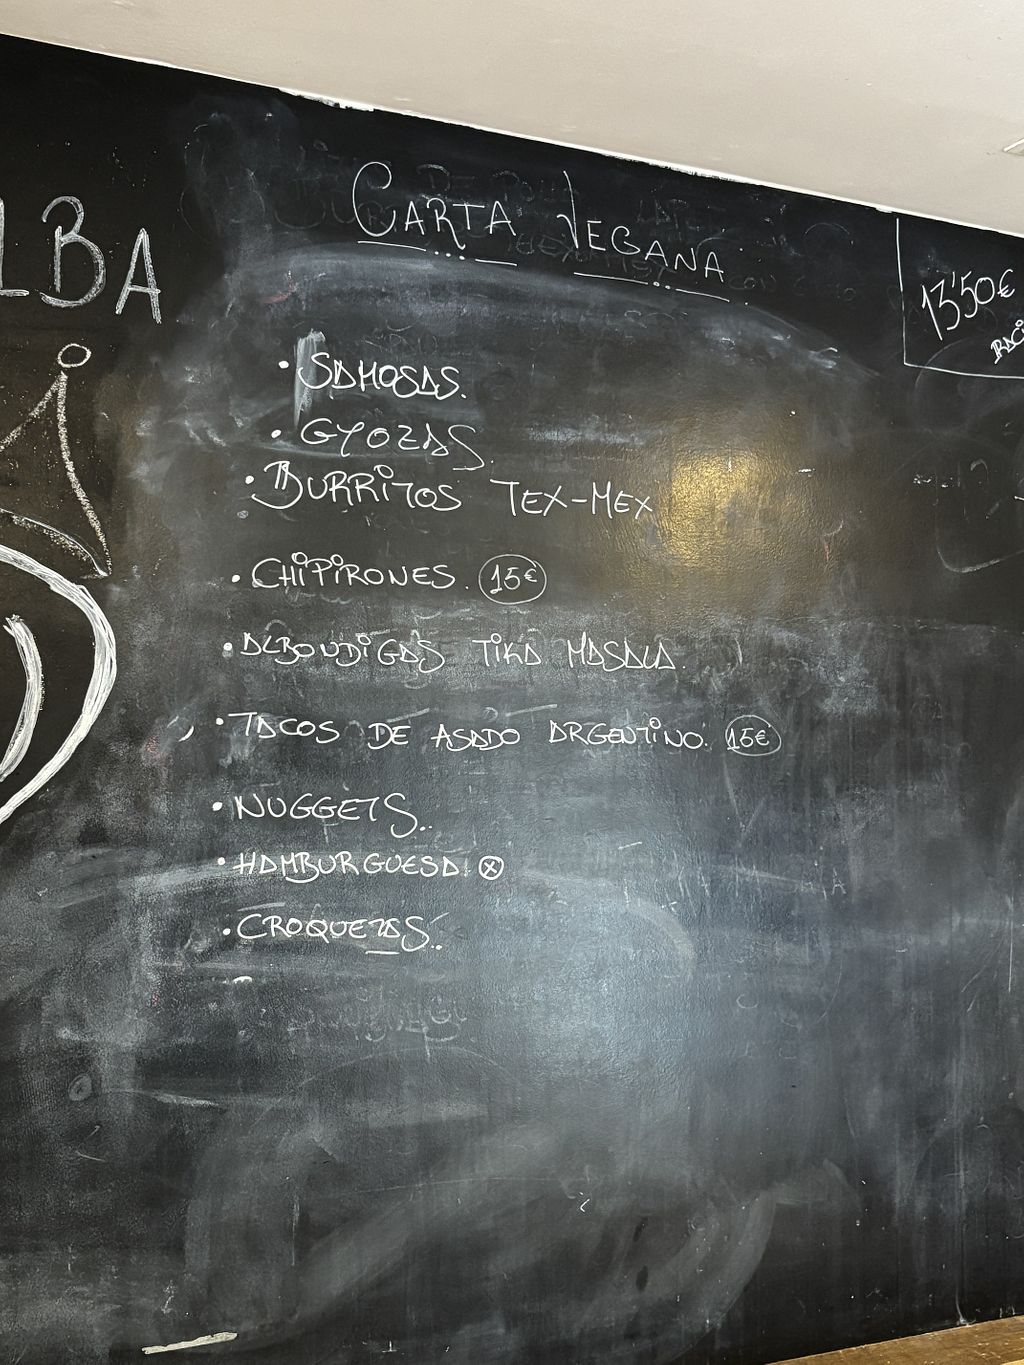 LBA
CARTA VEGANA
13'50€
RACI
· SAMOSAS.
· GYOZAS.
· BURRITOS TEX-MEX
· CHIPIRONES. 15€
· ALBONDIGAS TIKA MASALA.
· TACOS DE ASADO ARGENTINO. 15€
· NUGGETS..
· HAMBURGUESA. ⊗
· CROQUETAS..